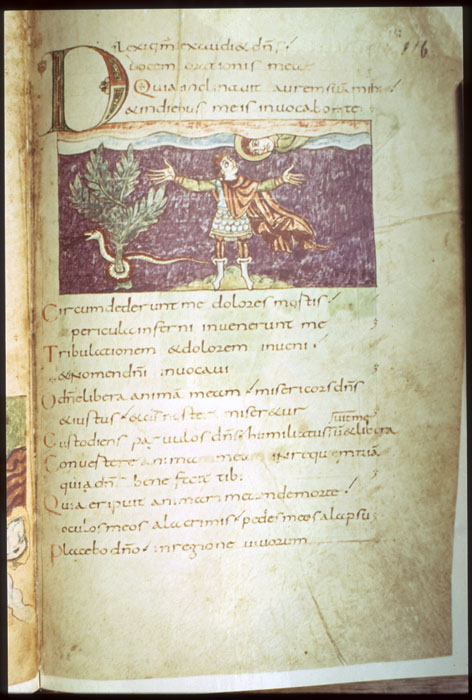 116
Dilexi qm exaudi& dns
vocem orationis meae
Quia inclinavit aurem suam mihi
& in diebus meis invocabo te
Circumdederunt me dolores mortis
pericula inferni invenerunt me
Tribulationem & dolorem inveni
& nomen dni invocavi
O dne libera animā meam misericors dns
& iustus & ds noster miser&ur
vit me
Custodiens parvulos dns humiliatus sū & libera
Convertere anima mea in requiem tuā
quia dns bene fecit tibi
Quia eripuit animam meam de morte
oculos meos a lacrimis pedes meos a lapsu
Placebo dno in regione vivorum